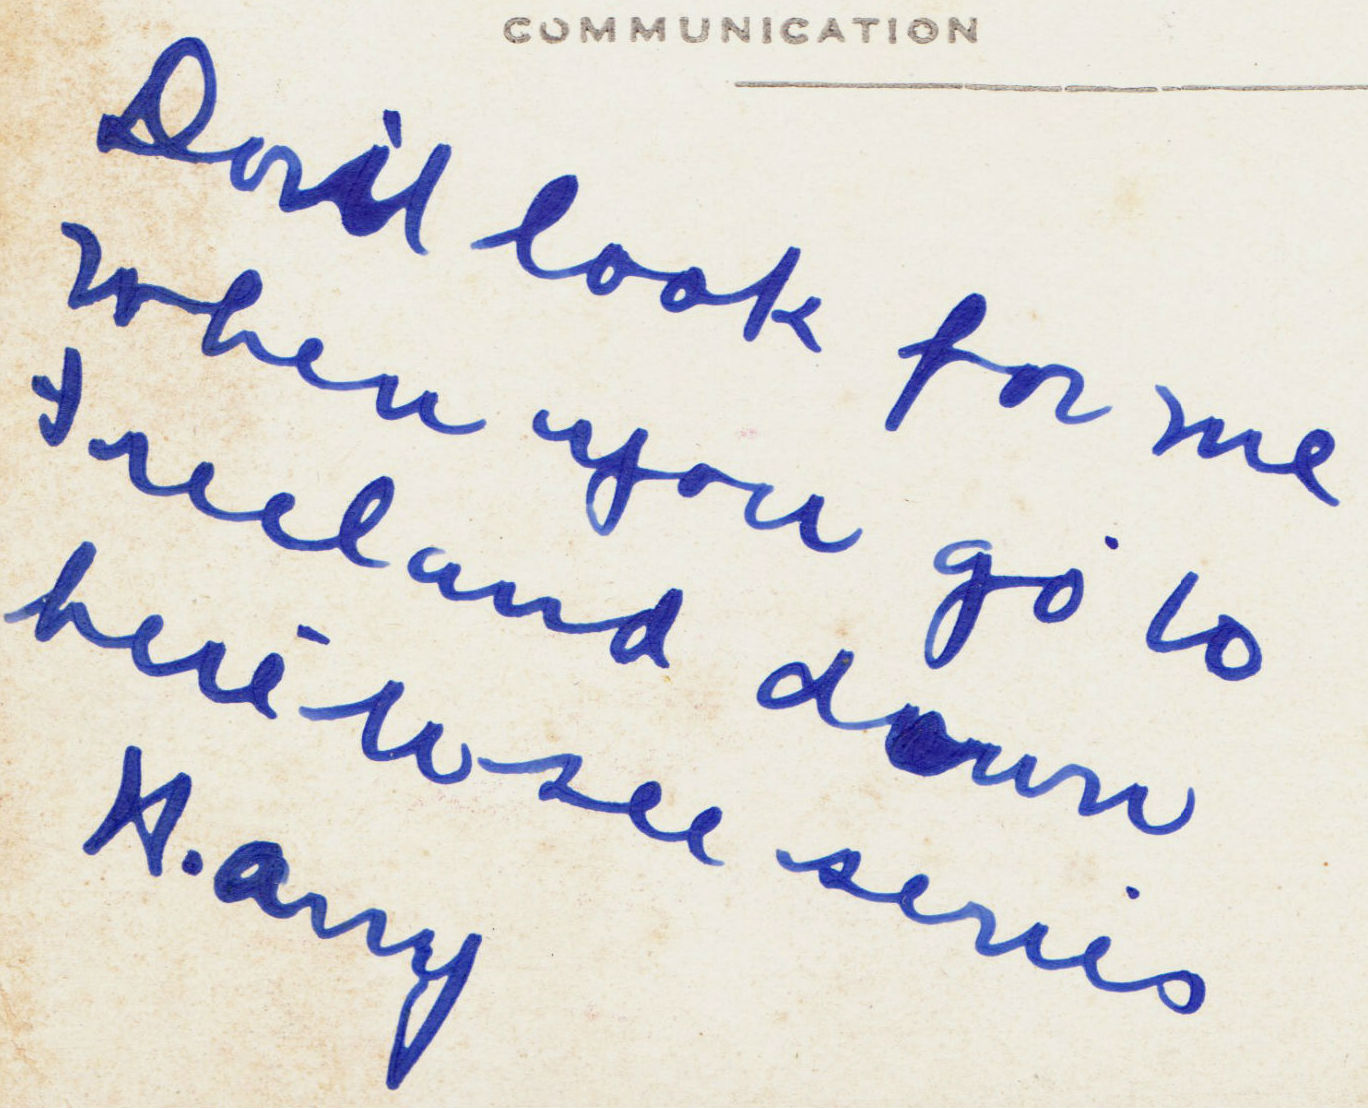 COMMUNICATION
Don't look for me
when you go to
Freeland down
here to see series
Harry